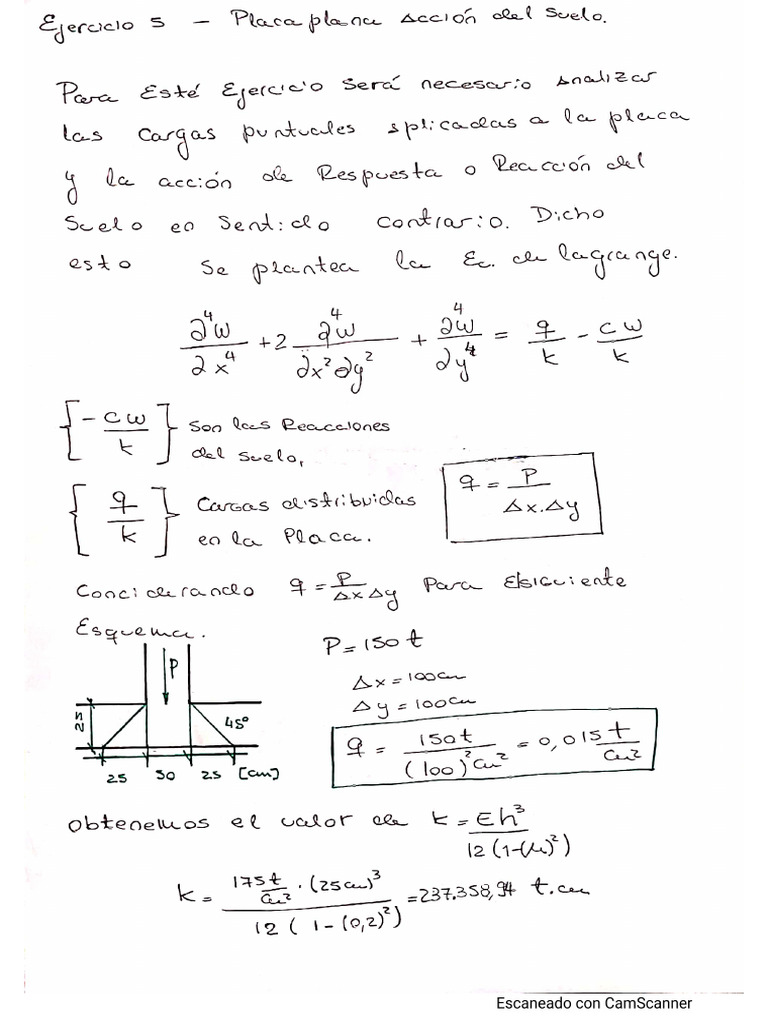 Ejercicio 5 – Placa plana Acción del Suelo.
Para Esté Ejercicio Será necesario analizar
las Cargas puntuales aplicadas a la placa
y la acción de Respuesta o Reacción del
Suelo en Sentido contrario. Dicho
esto se plantea la Ec. de lagrange.
∂⁴w/∂x⁴ + 2 ∂⁴w/∂x²∂y² + ∂⁴w/∂y⁴ = q/k - cw/k
[-cw/k] Son las Reacciones
del Suelo,
[q/k] Cargas distribuidas
en la Placa.
q = P/Δx.Δy
Conciderando q = P/ΔxΔy Para Elsiguiente
Esquema.
P = 150 t
Δx = 100cm
Δy = 100cm
q = 150t/(100)²cm² = 0,015 t/cm²
P
25
45°
25 50 25 [cm]
obtenemos el valor de k = Eh³/12(1-(μ)²)
k = 175 t/cm² · (25cm)³/12(1-(0,2)²) = 237.358,94 t.cm
Escaneado con CamScanner